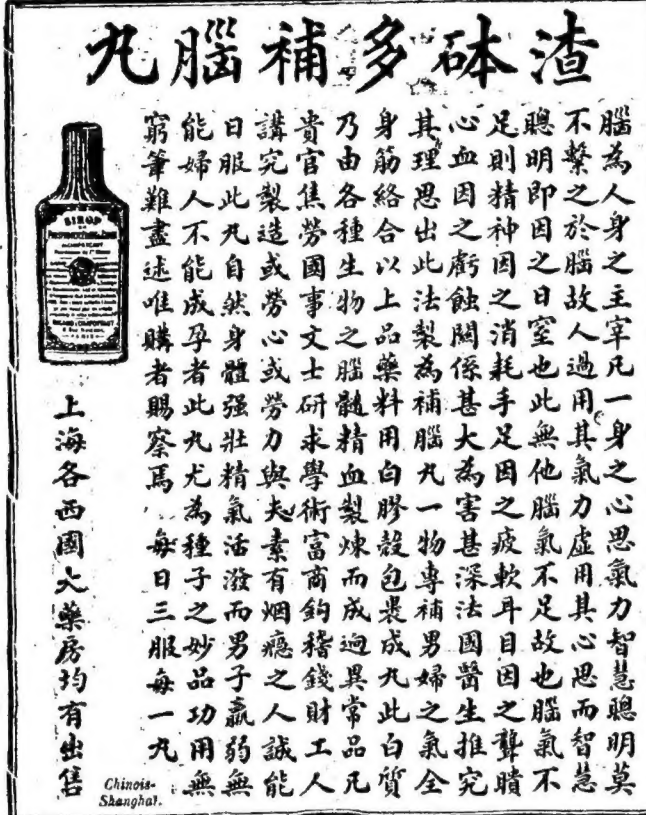 渣砵多補腦丸
腦為人身之主宰凡一身之心思氣力智慧聰明莫
不繫之於腦故人過用其氣力虛用其心思而智慧
聰明即因之日窒也此無他腦氣不足故也腦氣不
足則精神因之消耗手足因之疲軟耳目因之聾瞶
心血因之虧蝕關係甚大為害甚深法國醫生推究
其理思出此法製為補腦丸一物專補男婦之氣全
身筋絡合以上品藥料用白膠殼包裹成丸此白質
乃由各種生物之腦髓精血製煉而成逈異常品凡
貴官焦勞國事文士研求學術富商鈎稽錢財工人
講究製造或勞心或勞力與夫素有烟癮之人誠能
日服此丸自然身體强壯精氣活潑而男子羸弱無
能婦人不能成孕者此丸尤為種子之妙品功用無
窮筆難盡述唯購者賜察焉 每日三服每一丸
SIROP
上海各西國大藥房均有出售
Chinois-
Shanghai.